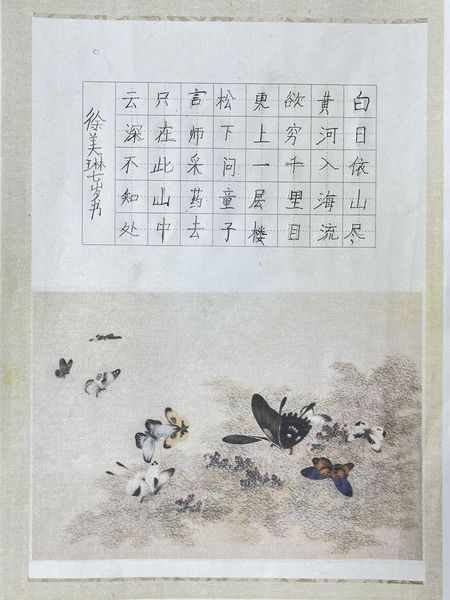 白日依山尽
黄河入海流
欲穷千里目
更上一层楼
松下问童子
言师采药去
只在此山中
云深不知处
徐美琳七岁书